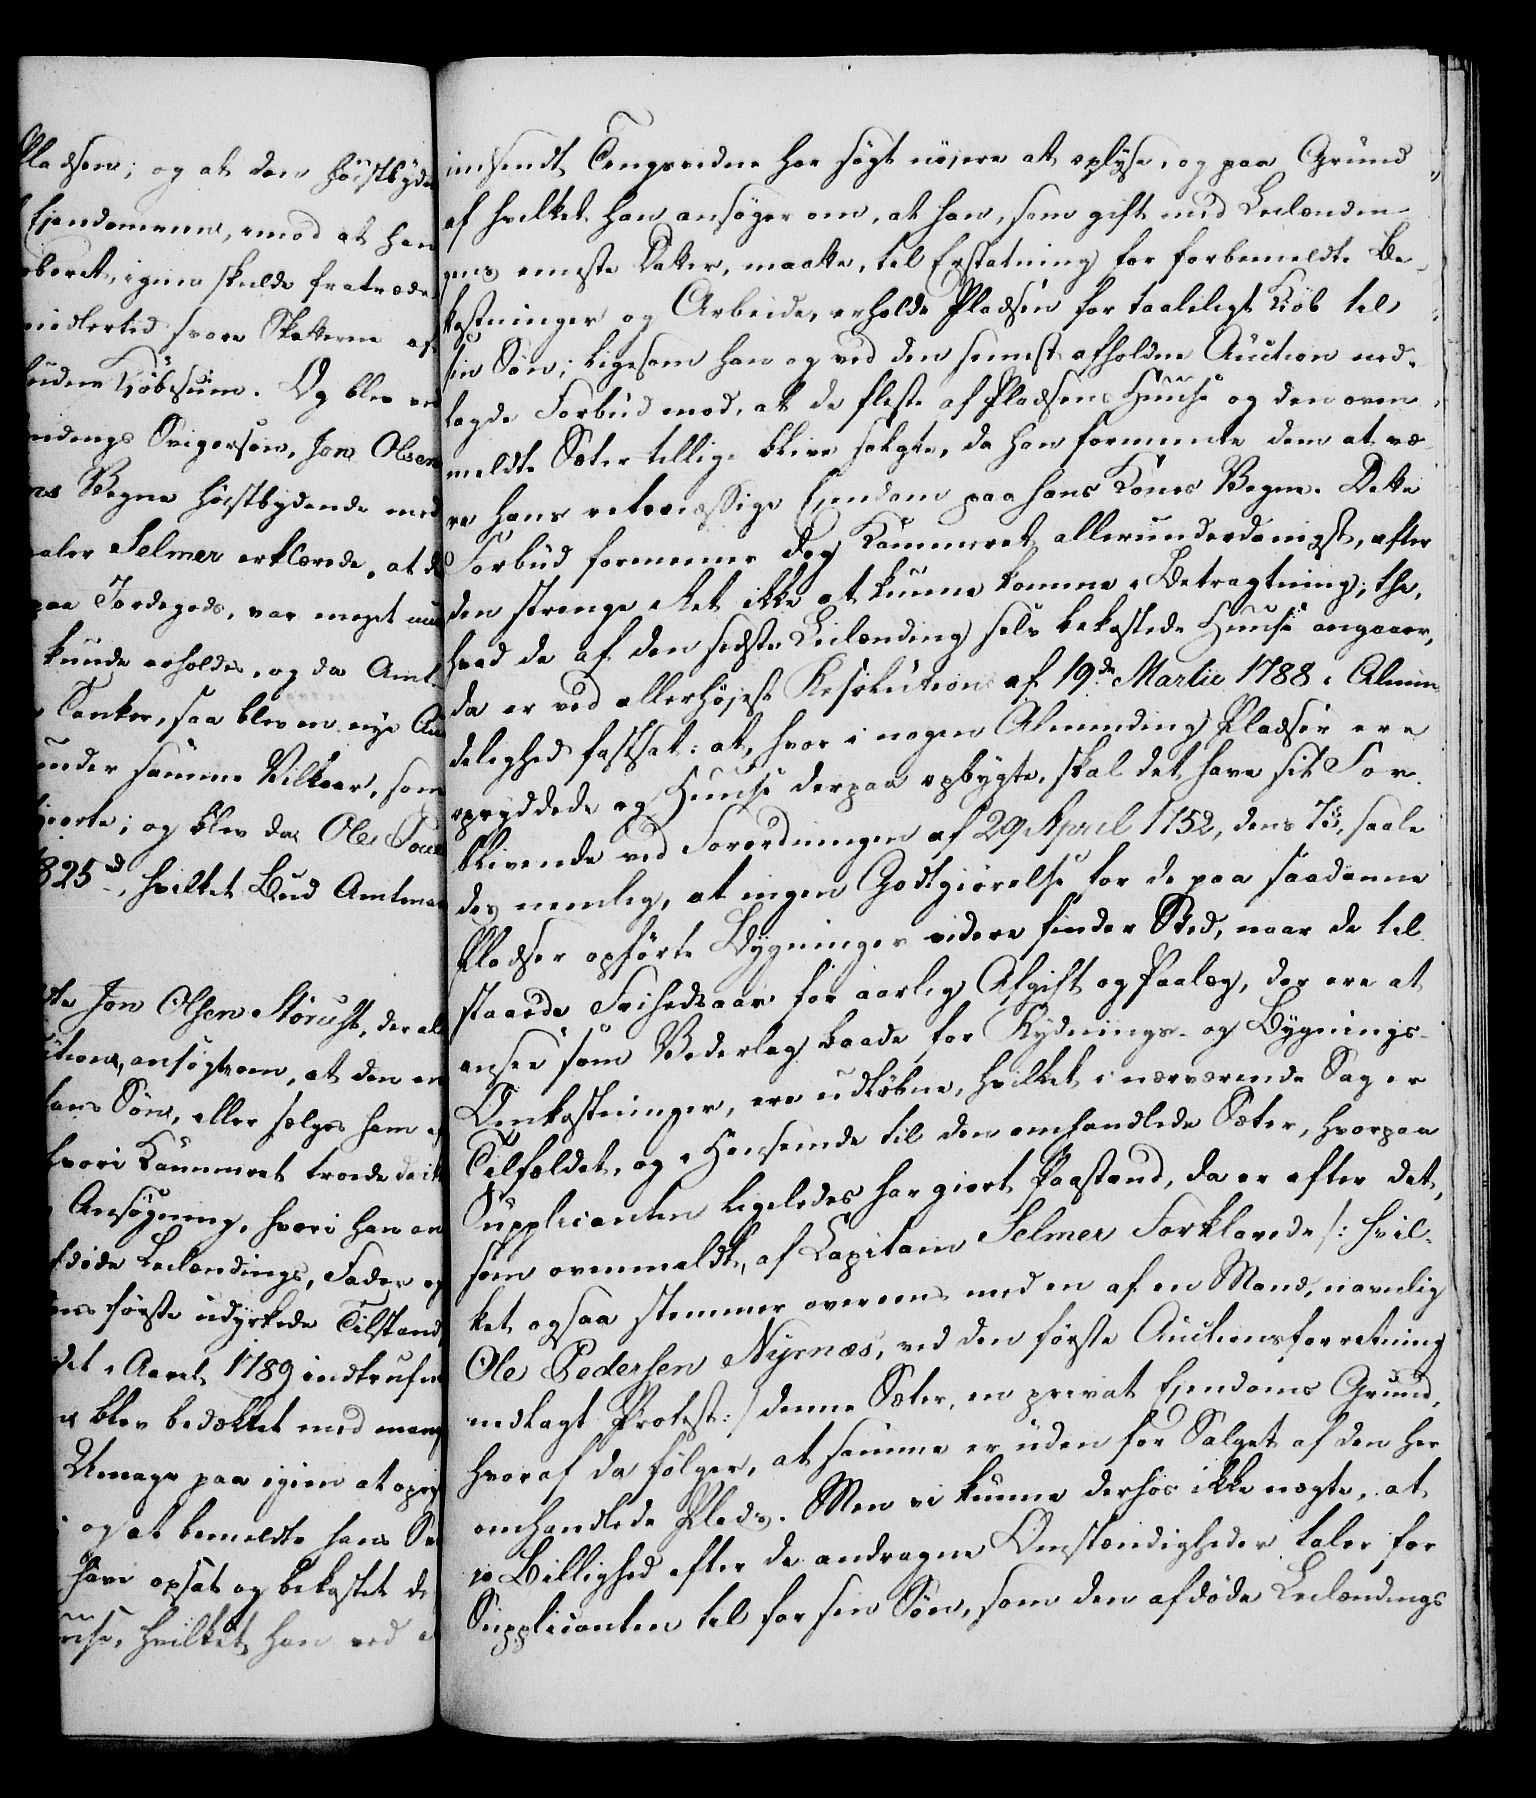 Pladsen; og at den høistbyde
Ejendommen, imod at han
oberet, igien skulde fratræde
midlertid svare Skatterne af
budne Kiöbesum. Og blev ved
ndings Svigersøn, Jon Olsen
ns Vegne høistbydende med
aler Selmer erklærede, at de
paa Jordegods, var meget
kunde erholdes, og da Amt-
Tanker, saa blev en nye Au
under samme Vilkaar, som
giorte; og blev da Ole
825 rd, hvilket Bud Amtman
Jon Olsen Störust, der all
ution, ansøgt om, at den
hans Søn, eller sælges ham
hvori Kammeret troede
Ansøgning, hvori han an
fdøde Leilændings, Fader og
ens første udyrkede Tilstand
det i Aaret 1789 indtrufne
blev bedækket med mang
Umage paa igien at
og at bemeldte hans
have opsat og bekostet de
hvilket han ved
indsendt Tingsvidne har søgt nøiere at oplyse, og paa Grund
af hvilket han ansøger om, at han, som gift med Leilændin-
gens eneste Datter, maatte, til Erstatning for forbemeldte Be-
kostninger og Arbeide, erholde Pladsen for taaleligt Kiöb til
sin Søn; ligesom han og ved den seneste afholdne Auction ned-
lagde Forbud mod, at de fleste af Pladsens Huuse og den oven-
meldte Sæter tillige bleve solgte, da han formeente dem at væ-
re hans retmæssige Ejendom paa hans Kones Vegne. Dette
Forbud formener dog Kammeret allerunderdanigst, efter
den strenge Ret ikke at kunne komme i Betragtning; thi,
hvad de af den sidste Leilænding selv bekostede Huuse angaaer,
da er ved allerhøjest Resolution af 19de Martii 1788 i Almin-
delighed fastsat: at, hvor i nogen Almending Pladser ere
opryddede og Huuse derpaa opbygte, skal det have sit For-
blivende ved Forordningen af 29 April 1752, dens 7de §, saale-
des nemlig, at ingen Godtgiørelse for de paa saadanne
Pladser opførte Bygninger videre finder Sted, naar de til-
staaede Friheds aar for aarlig Afgift og Paalæg, der ere at
ansee som Vederlag baade for Rydnings- og Bygnings-
Omkostninger, ere udløbne, hvilket i nærværende Sag er
Tilfældet, og i Henseende til den omhandlede Sæter, hvorpaa
Supplicanten ligeledes har giort Paastand, da er efter det,
som ovenmeldt, af Capitain Selmer Forklarede /: hvil-
ket ogsaa stemmer overeens med en af en Mand, navnlig
Ole Pedersen Nyrnæs, ved den første Auctionsforretning
nedlagt Protest :/ denne Sæter, en privat Ejendoms Grund,
hvoraf da følger, at samme er uden for Salget af den her
omhandlede Plads. Men vi kunne derhos ikke nægte, at
jo Billighed efter de andragne Omstændigheder taler for
Supplicanten til for sin Søn, som den afdøde Leilændings